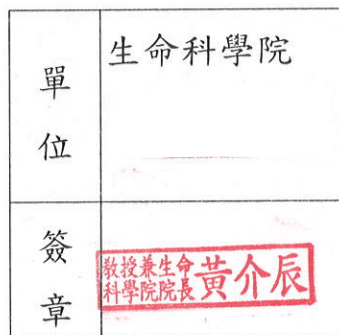 單位
生命科學院
簽章
教授兼生命
科學院院長
黃介辰